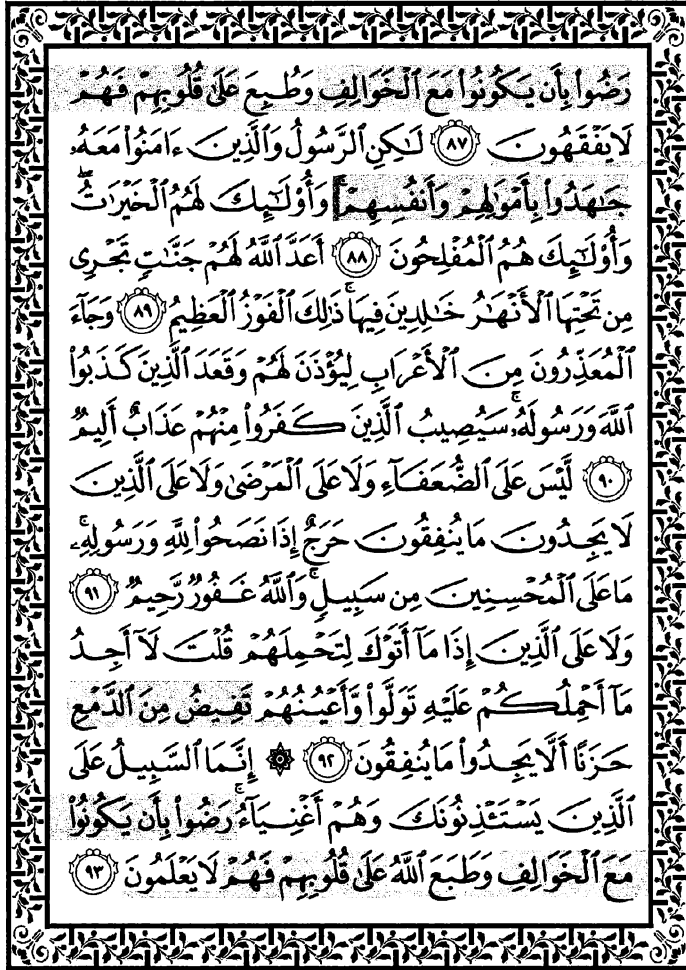 رَضُوا۟ بِأَن يَكُونُوا۟ مَعَ ٱلْخَوَالِفِ وَطُبِعَ عَلَىٰ قُلُوبِهِمْ فَهُمْ
لَا يَفْقَهُونَ ﴿٨٧﴾ لَـٰكِنِ ٱلرَّسُولُ وَٱلَّذِينَ ءَامَنُوا۟ مَعَهُۥ
جَـٰهَدُوا۟ بِأَمْوَٰلِهِمْ وَأَنفُسِهِمْ ۚ وَأُو۟لَـٰٓئِكَ لَهُمُ ٱلْخَيْرَٰتُ ۖ
وَأُو۟لَـٰٓئِكَ هُمُ ٱلْمُفْلِحُونَ ﴿٨٨﴾ أَعَدَّ ٱللَّهُ لَهُمْ جَنَّـٰتٍ تَجْرِى
مِن تَحْتِهَا ٱلْأَنْهَـٰرُ خَـٰلِدِينَ فِيهَا ۚ ذَٰلِكَ ٱلْفَوْزُ ٱلْعَظِيمُ ﴿٨٩﴾ وَجَآءَ
ٱلْمُعَذِّرُونَ مِنَ ٱلْأَعْرَابِ لِيُؤْذَنَ لَهُمْ وَقَعَدَ ٱلَّذِينَ كَذَبُوا۟
ٱللَّهَ وَرَسُولَهُۥ ۚ سَيُصِيبُ ٱلَّذِينَ كَفَرُوا۟ مِنْهُمْ عَذَابٌ أَلِيمٌ
﴿٩٠﴾ لَّيْسَ عَلَى ٱلضُّعَفَآءِ وَلَا عَلَى ٱلْمَرْضَىٰ وَلَا عَلَى ٱلَّذِينَ
لَا يَجِدُونَ مَا يُنفِقُونَ حَرَجٌ إِذَا نَصَحُوا۟ لِلَّهِ وَرَسُولِهِۦ ۚ
مَا عَلَى ٱلْمُحْسِنِينَ مِن سَبِيلٍ ۚ وَٱللَّهُ غَفُورٌ رَّحِيمٌ ﴿٩١﴾
وَلَا عَلَى ٱلَّذِينَ إِذَا مَآ أَتَوْكَ لِتَحْمِلَهُمْ قُلْتَ لَآ أَجِدُ
مَآ أَحْمِلُكُمْ عَلَيْهِ تَوَلَّوا۟ وَّأَعْيُنُهُمْ تَفِيضُ مِنَ ٱلدَّمْعِ
حَزَنًا أَلَّا يَجِدُوا۟ مَا يُنفِقُونَ ﴿٩٢﴾ ۞ إِنَّمَا ٱلسَّبِيلُ عَلَى
ٱلَّذِينَ يَسْتَـْٔذِنُونَكَ وَهُمْ أَغْنِيَآءُ ۚ رَضُوا۟ بِأَن يَكُونُوا۟
مَعَ ٱلْخَوَالِفِ وَطَبَعَ ٱللَّهُ عَلَىٰ قُلُوبِهِمْ فَهُمْ لَا يَعْلَمُونَ ﴿٩٣﴾